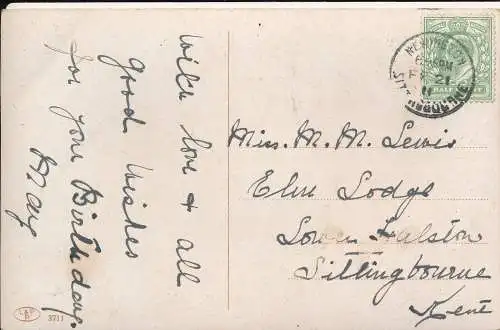 With love & all
good wishes
for your Birthday.
May
Miss. M. M. Lewis
Elm Lodge
Lower Halstow
Sittingbourne
Kent
NEWINGTON
21
11
SITTINGBOURNE
HALF PENNY
3711